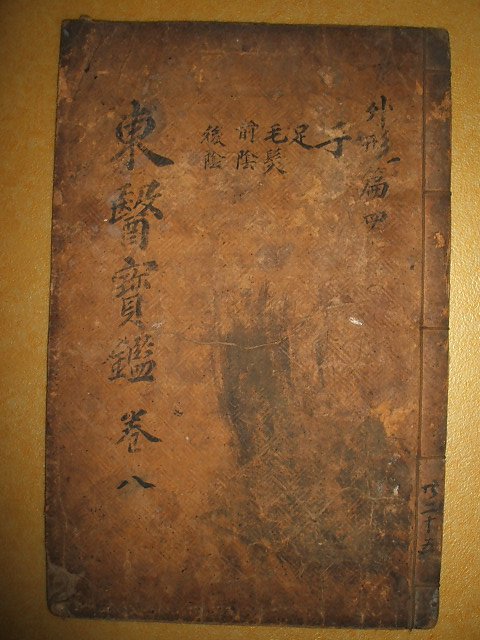 外形篇四
手
足
毛髮
前陰
後陰
東醫寶鑑 卷八
共二十五